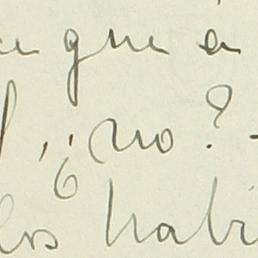 que a
, ¿no? -
los habi